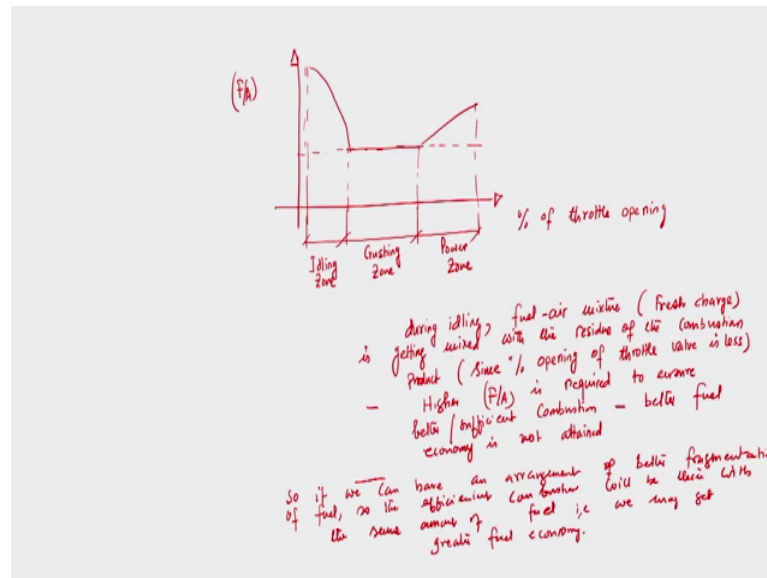 (F/A)
% of throttle opening
Idling Zone
Gushing Zone
Power Zone
during idling, fuel-air mixture (Fresh charge)
is getting mixed with the residue of the combustion
product (since % opening of throttle valve is less)
- Higher (F/A) is required to ensure
better / sufficient combustion - better fuel
economy is not attained
So if we can have an arrangement of better fragmentati
of fuel, so the efficient combustion will be there with
the same amount of fuel i.e we may get
greater fuel economy.